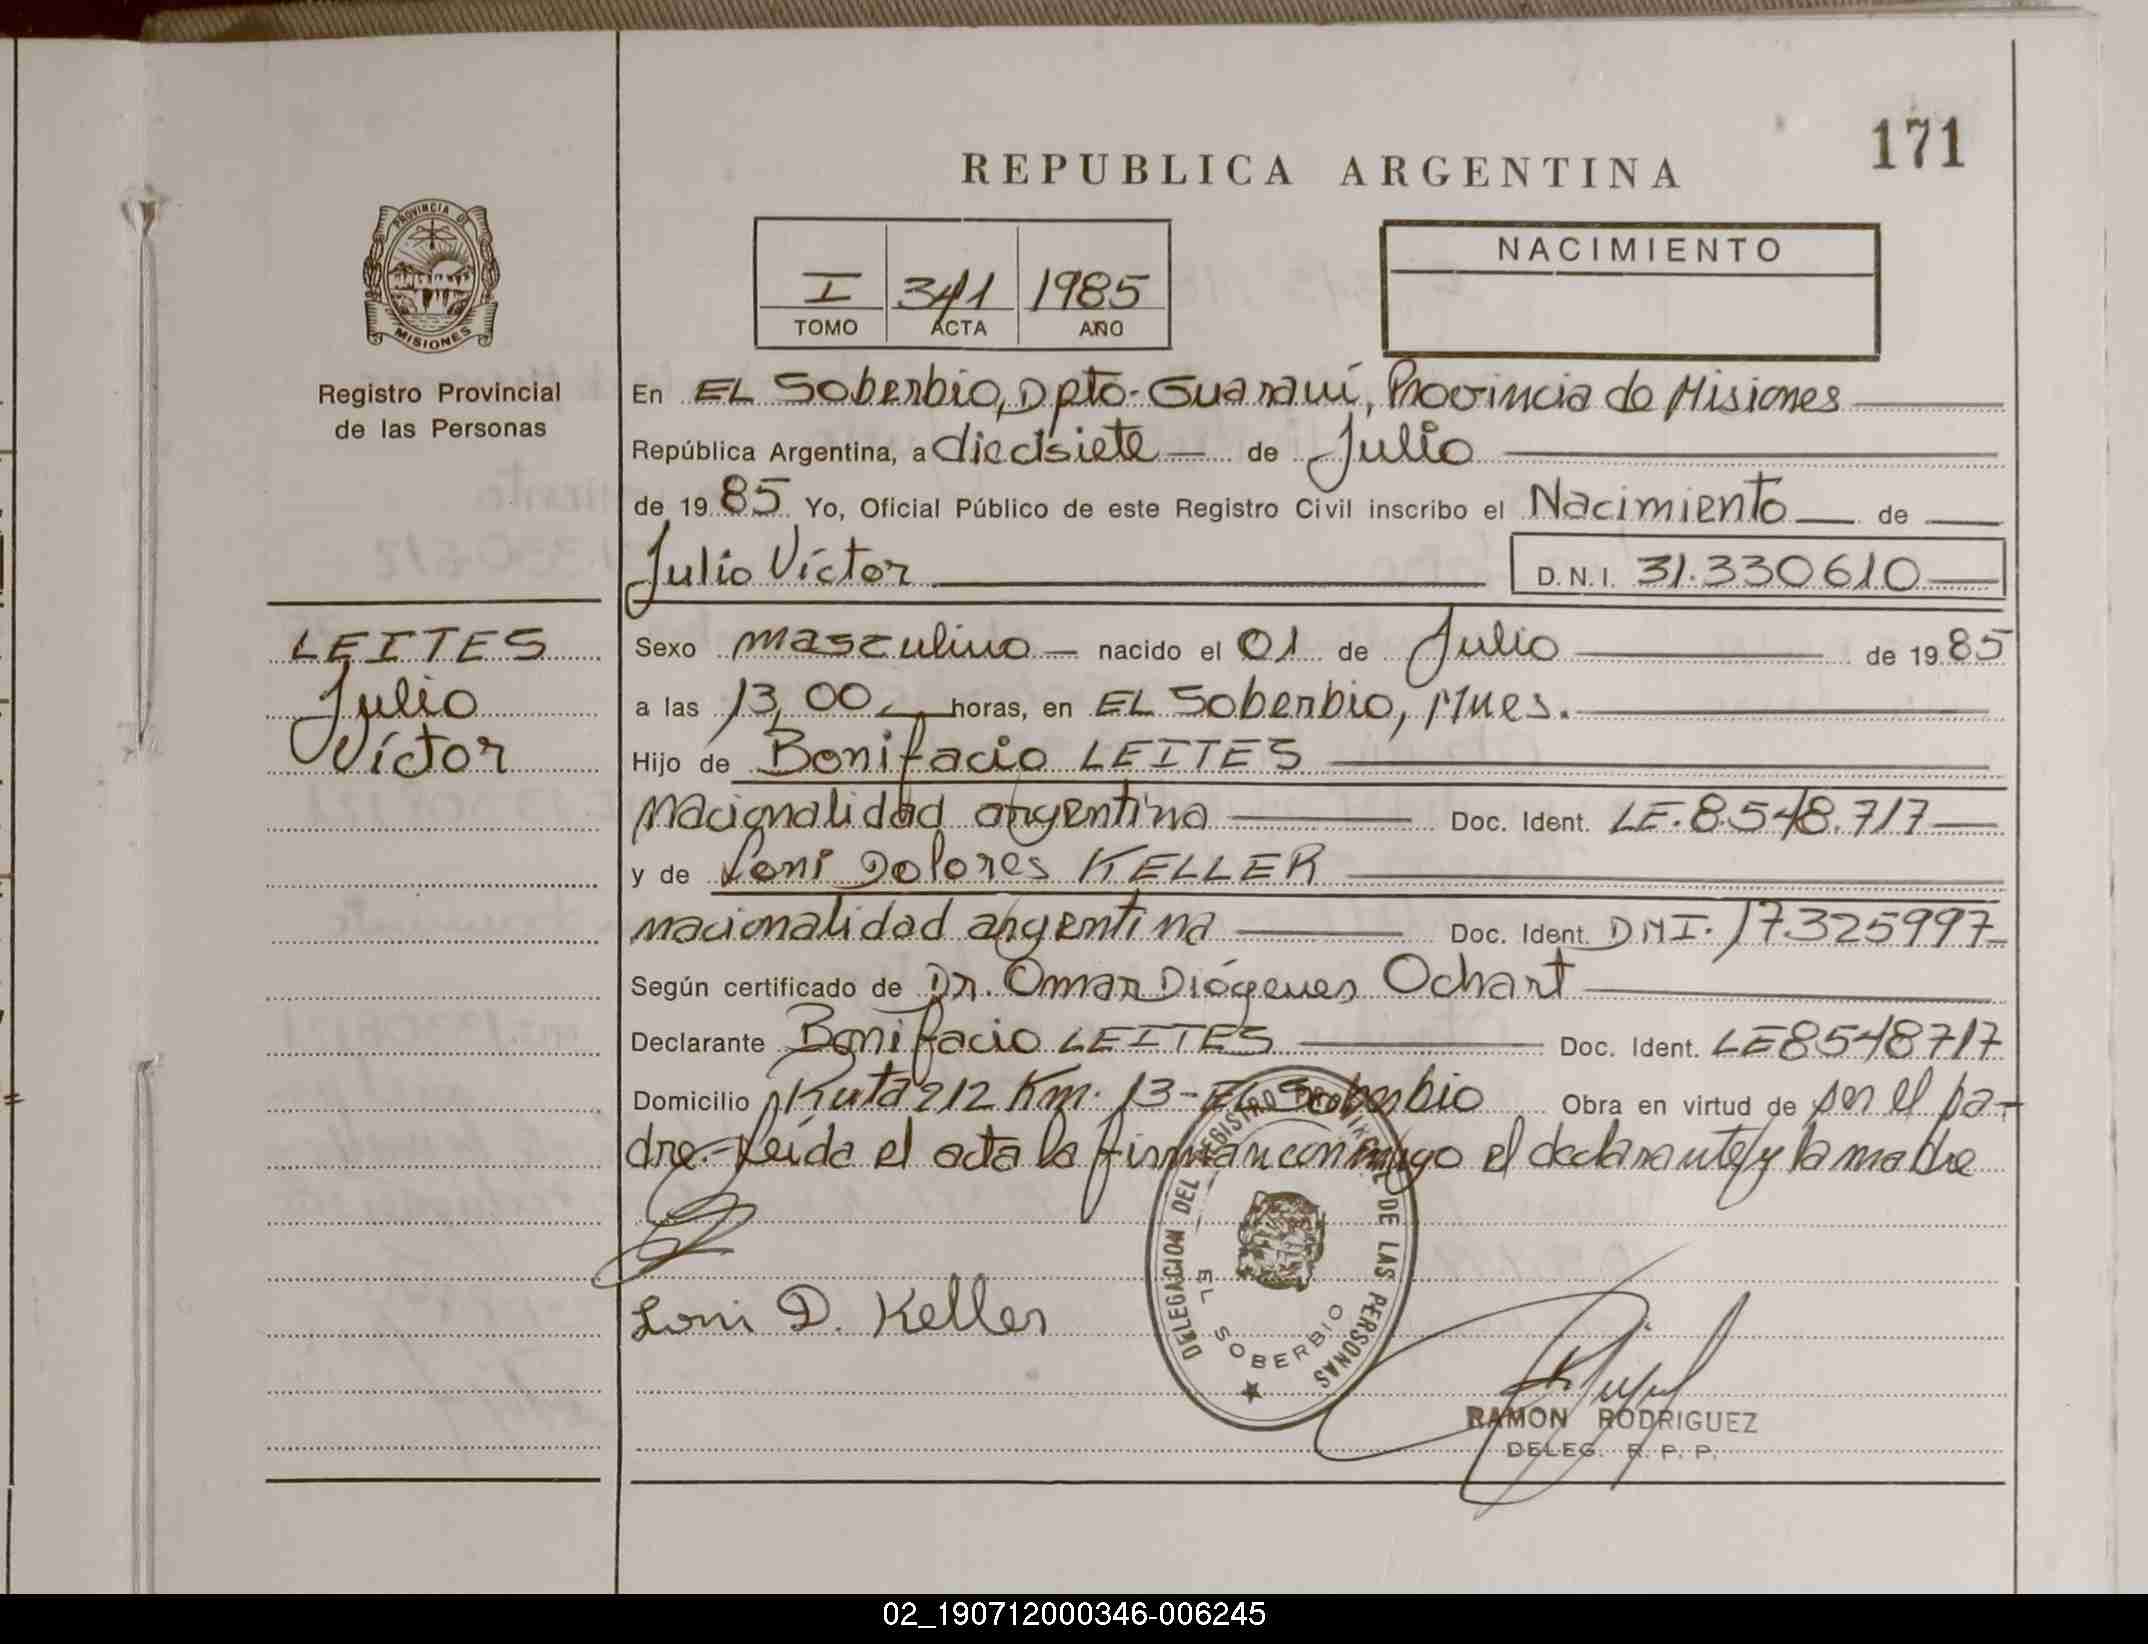 171
REPUBLICA ARGENTINA
PROVINCIA DE
MISIONES
Registro Provincial
de las Personas
I 341 1985
TOMO ACTA AÑO
NACIMIENTO
En EL Soberbio, Dpto. Guaraní, Provincia de Misiones
República Argentina, a diecisiete de Julio
de 1985 Yo, Oficial Público de este Registro Civil inscribo el Nacimiento de
Julio Víctor D.N.I. 31.330610
LEITES
Julio
Víctor
Sexo masculino nacido el 01 de Julio de 1985
a las 13,00 horas, en EL Soberbio, Mnes.
Hijo de Bonifacio LEITES
nacionalidad argentina Doc. Ident. LE. 8.548.717
y de Loni Dolores KELLER
nacionalidad argentina Doc. Ident. DNI. 17.325997
Según certificado de Dr. Omar Diógenes Ochart
Declarante Bonifacio LEITES Doc. Ident. LE 8548717
Domicilio Ruta 212 Km. 13 - EL Soberbio Obra en virtud de ser el pa-
dre.- Leída el acta la firman conmigo el declarante y la madre
Loni D. Keller
DELEGACION DEL REGISTRO PROVINCIAL DE LAS PERSONAS
EL SOBERBIO
RAMON RODRIGUEZ
DELEG. R. P. P.
02_190712000346-006245